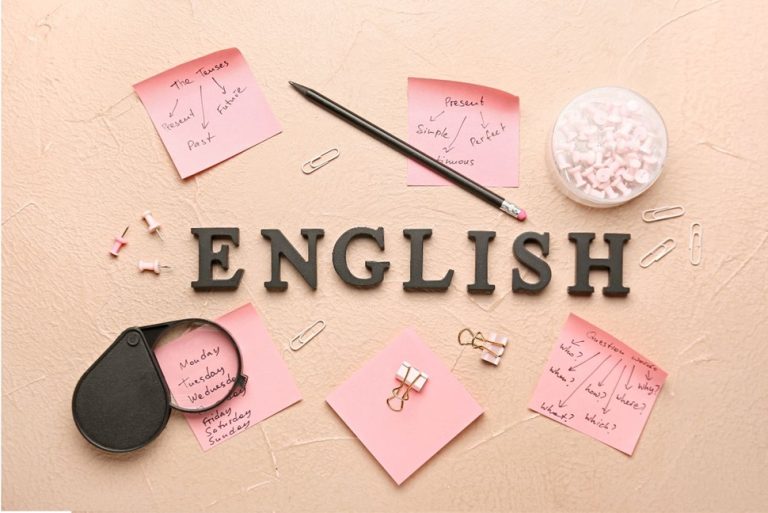 The Tenses
Present
Past
Future
Present
Simple
Perfect
tinuous
ENGLISH
Monday
Tuesday
Wednesda
Friday
Saturday
Sunday
Question
Who?
When?
What?
how?
Which?
Where?
Why?